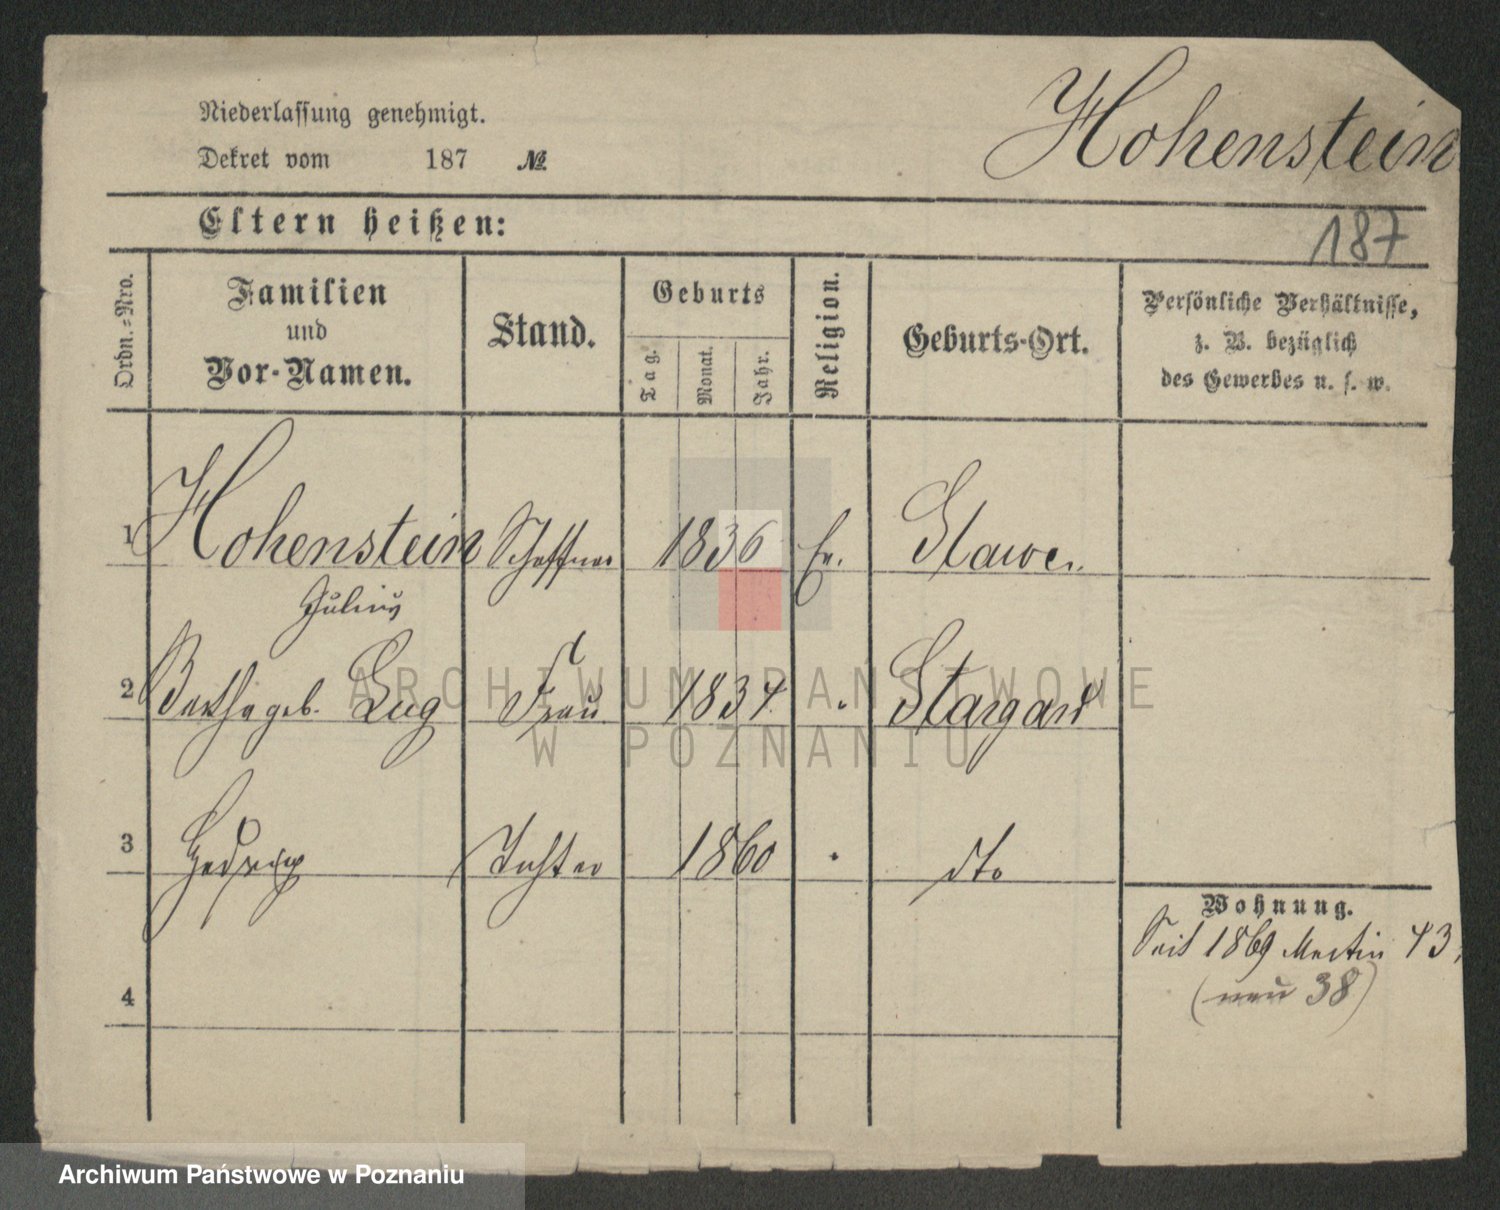 Niederlassung genehmigt.
Dekret vom 187 №
Hohenstein
Eltern heißen:
187
Ordn.=Nro.
Familien
und
Vor-Namen.
Stand.
Geburts
Tag.
Monat.
Jahr.
Religion.
Geburts-Ort.
Persönliche Verhältnisse,
z. B. bezüglich
des Gewerbes u. s. w.
1 Hohenstein Schaffner 1836 Ev.
Julius
2 geb. Lug Frau 1834 Stargard
3 Hedwig Tochter 1860 dto
Wohnung.
Seit 1869 Martin 43,
(neu 38)
4
ARCHIWUM PAŃSTWOWE
W POZNANIU
Archiwum Państwowe w Poznaniu